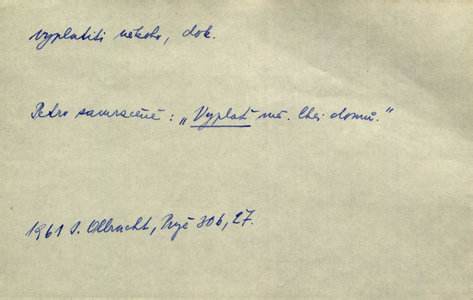 vyplatiti někoho, dok.
Petro zamračeně: „Vyplať mě. Chci domů."
1961 I. Olbracht, Prýč 306, 27.